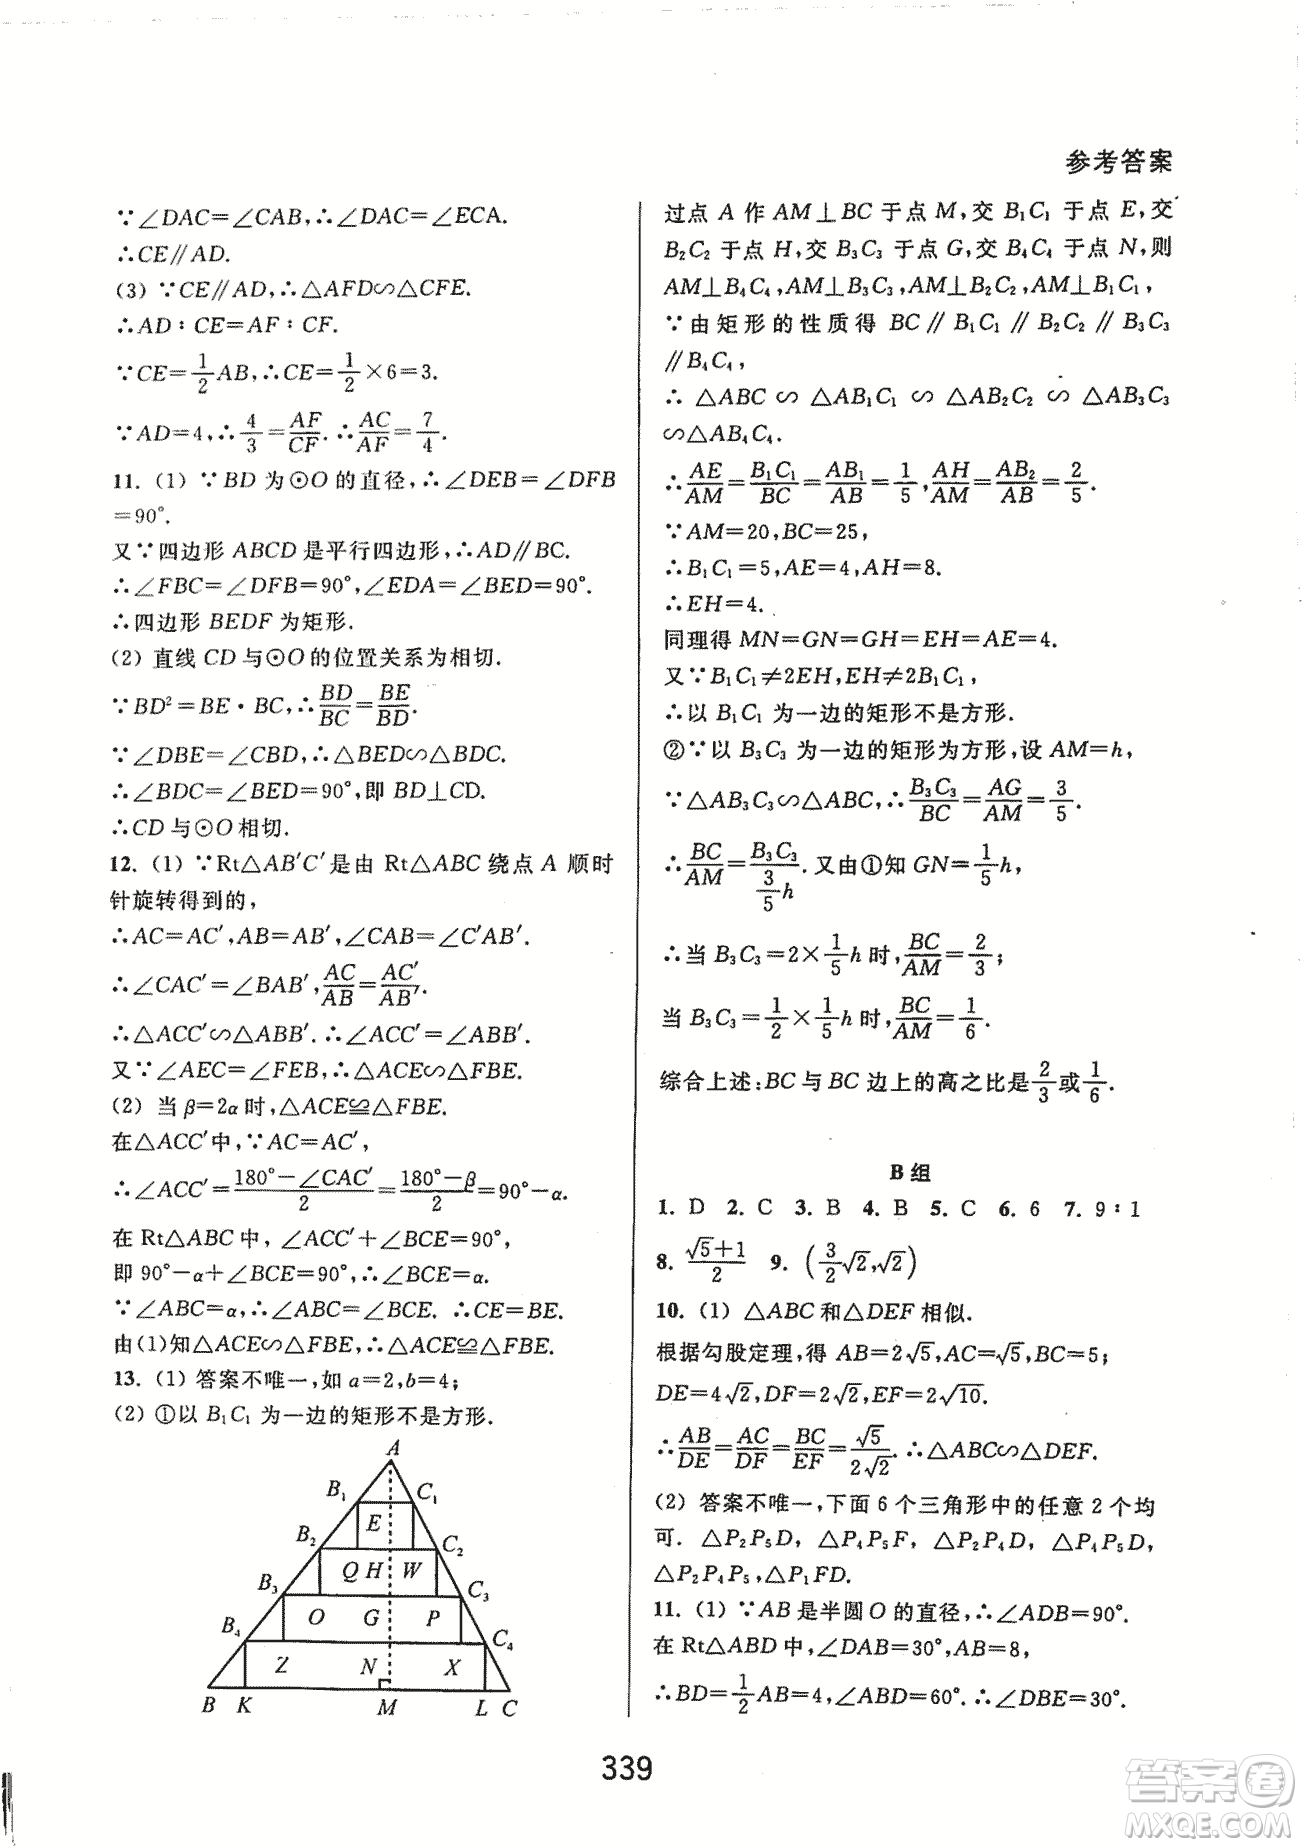 参考答案
∵∠DAC=∠CAB,∴∠DAC=∠ECA.
∴CE∥AD.
(3) ∵CE∥AD,∴△AFD∽△CFE.
∴AD∶CE=AF∶CF.
∵CE=1/2AB,∴CE=1/2×6=3.
∵AD=4,∴4/3=AF/CF.∴AC/AF=7/4.
11. (1) ∵BD 为⊙O 的直径,∴∠DEB=∠DFB
=90°.
又∵四边形 ABCD 是平行四边形,∴AD∥BC.
∴∠FBC=∠DFB=90°,∠EDA=∠BED=90°.
∴四边形 BEDF 为矩形.
(2) 直线 CD 与⊙O 的位置关系为相切.
∵BD²=BE·BC,∴BD/BC=BE/BD.
∵∠DBE=∠CBD,∴△BED∽△BDC.
∴∠BDC=∠BED=90°,即 BD⊥CD.
∴CD 与⊙O 相切.
12. (1) ∵Rt△AB′C′是由 Rt△ABC 绕点 A 顺时
针旋转得到的,
∴AC=AC′,AB=AB′,∠CAB=∠C′AB′.
∴∠CAC′=∠BAB′,AC/AB=AC′/AB′.
∴△ACC′∽△ABB′.∴∠ACC′=∠ABB′.
又∵∠AEC=∠FEB,∴△ACE∽△FBE.
(2) 当 β=2α 时,△ACE≌△FBE.
在△ACC′中,∵AC=AC′,
∴∠ACC′=(180°-∠CAC′)/2=(180°-β)/2=90°-α.
在 Rt△ABC 中,∠ACC′+∠BCE=90°,
即 90°-α+∠BCE=90°,∴∠BCE=α.
∵∠ABC=α,∴∠ABC=∠BCE. ∴CE=BE.
由(1)知△ACE∽△FBE,∴△ACE≌△FBE.
13. (1) 答案不唯一,如 a=2,b=4;
(2) ①以 B₁C₁ 为一边的矩形不是方形.
A
B₁ C₁
E
B₂ C₂
Q H W
B₃ C₃
O G P
B₄ C₄
Z N X
B K M L C
过点 A 作 AM⊥BC 于点 M,交 B₁C₁ 于点 E,交
B₂C₂ 于点 H,交 B₃C₃ 于点 G,交 B₄C₄ 于点 N,则
AM⊥B₄C₄,AM⊥B₃C₃,AM⊥B₂C₂,AM⊥B₁C₁,
∵由矩形的性质得 BC∥B₁C₁∥B₂C₂∥B₃C₃
∥B₄C₄,
∴△ABC∽△AB₁C₁∽△AB₂C₂∽△AB₃C₃
∽△AB₄C₄.
∴AE/AM=B₁C₁/BC=AB₁/AB=1/5,AH/AM=AB₂/AB=2/5.
∵AM=20,BC=25,
∴B₁C₁=5,AE=4,AH=8.
∴EH=4.
同理得 MN=GN=GH=EH=AE=4.
又∵B₁C₁≠2EH,EH≠2B₁C₁,
∴以 B₁C₁ 为一边的矩形不是方形.
②∵以 B₃C₃ 为一边的矩形为方形,设 AM=h,
∵△AB₃C₃∽△ABC,∴B₃C₃/BC=AG/AM=3/5.
∴BC/AM=B₃C₃/(3/5 h).又由①知 GN=1/5h,
∴当 B₃C₃=2×1/5h 时,BC/AM=2/3;
当 B₃C₃=1/2×1/5h 时,BC/AM=1/6.
综合上述:BC 与 BC 边上的高之比是2/3或1/6.
B 组
1. D 2. C 3. B 4. B 5. C 6. 6 7. 9∶1
8. (√5+1)/2 9. (3/2√2,√2)
10. (1) △ABC 和△DEF 相似.
根据勾股定理,得 AB=2√5,AC=√5,BC=5;
DE=4√2,DF=2√2,EF=2√10.
∴AB/DE=AC/DF=BC/EF=√5/2√2.∴△ABC∽△DEF.
(2) 答案不唯一,下面 6 个三角形中的任意 2 个均
可. △P₂P₅D,△P₄P₅F,△P₂P₄D,△P₄P₅D,
△P₂P₄P₅,△P₁FD.
11. (1) ∵AB 是半圆 O 的直径,∴∠ADB=90°.
在 Rt△ABD 中,∠DAB=30°,AB=8,
∴BD=1/2AB=4,∠ABD=60°.∴∠DBE=30°.
339
答案卷
MXQE.COM